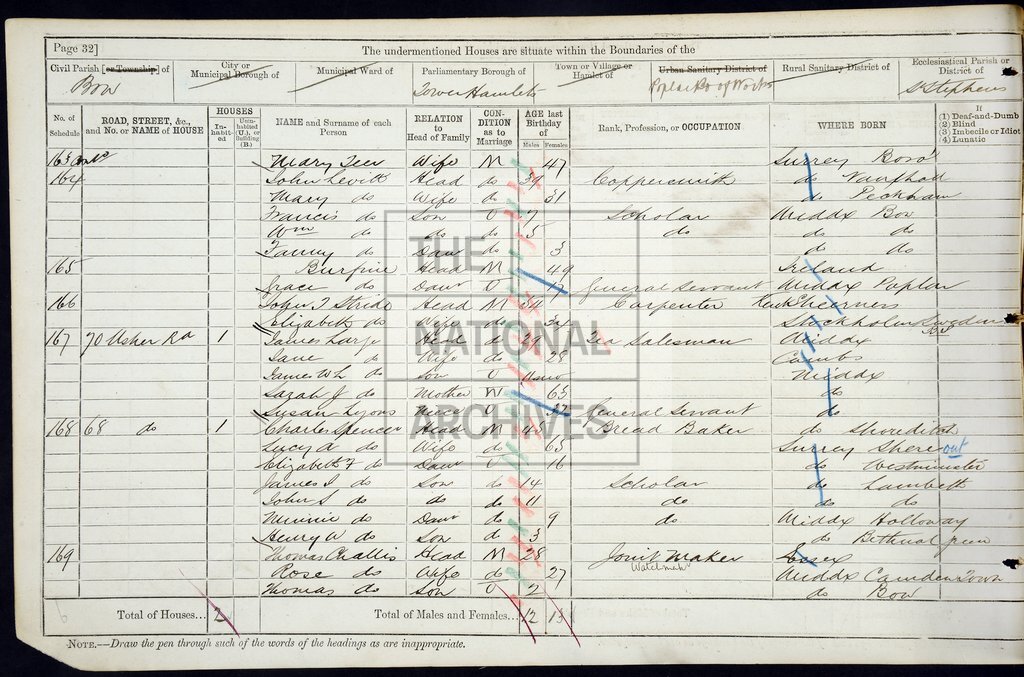 Page 32]
The undermentioned Houses are situate within the Boundaries of the
Civil Parish [or Township] of
City or Municipal Borough of
Municipal Ward of
Parliamentary Borough of
Town or Village or Hamlet of
Urban Sanitary District of
Rural Sanitary District of
Ecclesiastical Parish or District of
Bow
Tower Hamlets
Poplar Bd of Works
St Stephens
No. of Schedule
ROAD, STREET, &c., and No. or NAME of HOUSE
HOUSES
Inhabited
Uninhabited (U.), or Building (B.)
NAME and Surname of each Person
RELATION to Head of Family
CONDITION as to Marriage
AGE last Birthday of
Males
Females
Rank, Profession, or OCCUPATION
WHERE BORN
If
(1) Deaf-and-Dumb
(2) Blind
(3) Imbecile or Idiot
(4) Lunatic
163 Mary Wife M 47 Surrey Boro'
164 John Levitt Head do 39 Coppersmith do
Mary do Wife do 31 do Peckham
Francis do Son U 7 Scholar Middx Bow
Wm do do do 5 do do do
Fanny do Daur do 3 do do
165 Burfine Head M 49 Ireland
Grace do Daur U 17 General Servant Middx Poplar
166 John T Stride Head M 54 Carpenter Kent Sheerness
Elizabeth do Wife do 34 Stockholm Sweden
167 70 Usher Rd 1 James Large Head do 29 Tea Salesman Middx
Jane do Wife do 28 Cambs
James Wh do Son U Middx
Sarah J do Mother W 63 do
Susan Lyons Niece U 37 General Servant do
168 68 do 1 Charles Spencer Head M 45 Bread Baker do Shoreditch
Lucy A do Wife do Surrey Shere out
Elizabeth F do Daur U 16 do Westminster
James J do Son do 14 Scholar do Lambeth
John S do do do 11 do do do
Minnie do Daur do 9 do Middx Holloway
Henry W do Son do 3 do Bethnal green
169 Thomas Challis Head M 28 Joint Maker Essex
Watch
Rose do Wife do 27 Middx Camden Town
Thomas do Son U 2 do Bow
Total of Houses... 2
Total of Males and Females... 12 13
NOTE.—Draw the pen through such of the words of the headings as are inappropriate.
THE
NATIONAL
ARCHIVES